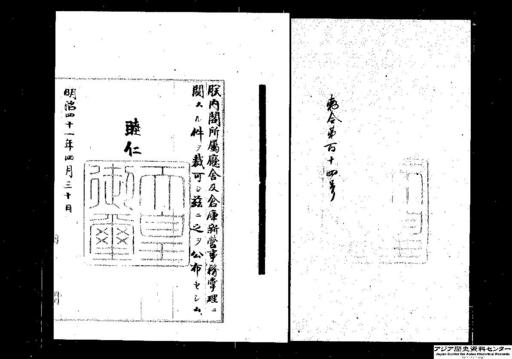 勅令第百十四号
朕内閣所属庁舎及倉庫新営事務管理ニ
関スル件ヲ裁可シ茲ニ之ヲ公布セシム
睦仁
天皇御璽
明治四十一年四月三十日
アジア歴史資料センター
Japan Center for Asian Historical Records